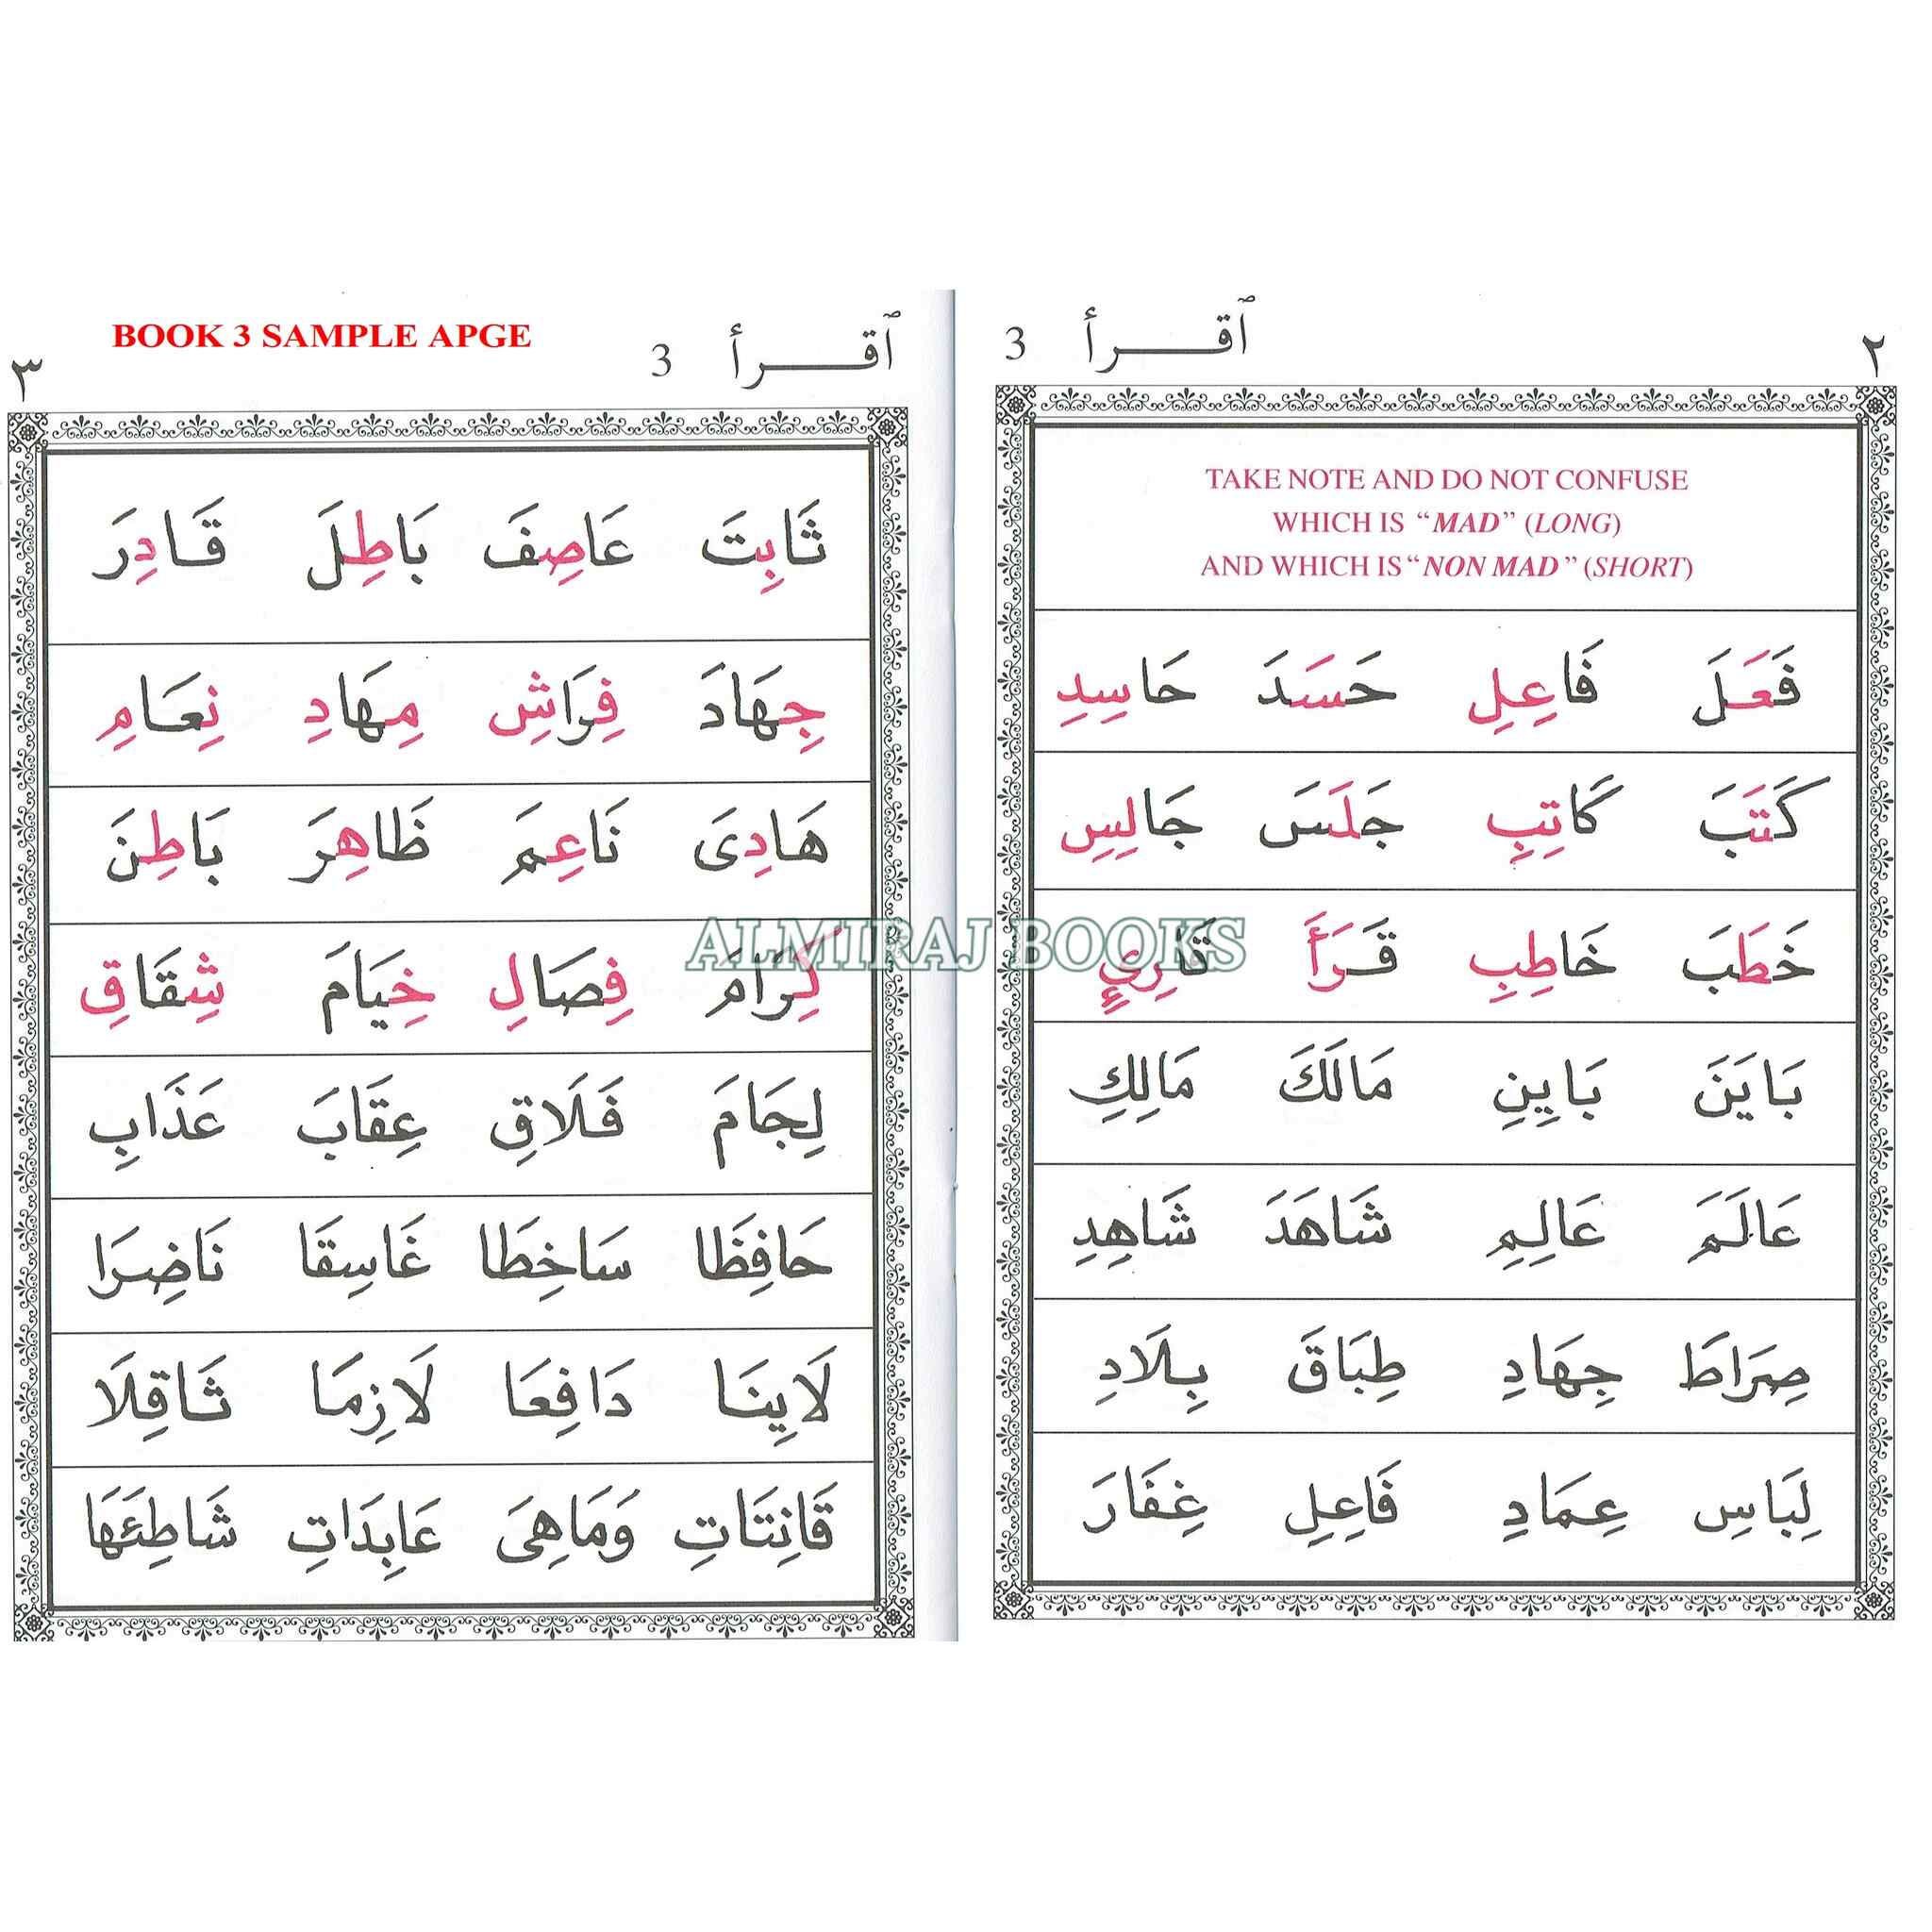 BOOK 3 SAMPLE APGE
٢ ٱقـــرأ 3
TAKE NOTE AND DO NOT CONFUSE
WHICH IS “MAD” (LONG)
AND WHICH IS “NON MAD” (SHORT)
فَعَلَ فَاعِلِ حَسَدَ حَاسِدِ
كَتَبَ كَاتِبِ جَلَسَ جَالِسِ
خَطَبَ خَاطِبِ قَرَأَ قَارِئِ
بَايَنَ بَايِنِ مَالَكَ مَالِكِ
عَالَمَ عَالِمِ شَاهَدَ شَاهِدِ
صِرَاطَ جِهَادِ طِبَاقَ بِلَادِ
لِبَاسِ عِمَادِ فَاعِلِ غِفَارَ
ٱقـــرأ 3 ٣
ثَابِتَ عَاصِفَ بَاطِلَ قَادِرَ
جِهَادَ فِرَاشِ مِهَادِ نِعَامِ
هَادِىَ نَاعِمَ ظَاهِرَ بَاطِنَ
كِرَامَ فِصَالِ خِيَامَ شِقَاقِ
لِجَامَ فَلَاقِ عِقَابَ عَذَابِ
حَافِظَا سَاخِطَا غَاسِقَا نَاضِرَا
لَايِنَا دَافِعَا لَازِمَا ثَاقِلَا
قَانِتَاتِ وَمَاهِىَ عَابِدَاتِ شَاطِئَهَا
ALMIRAJ BOOKS